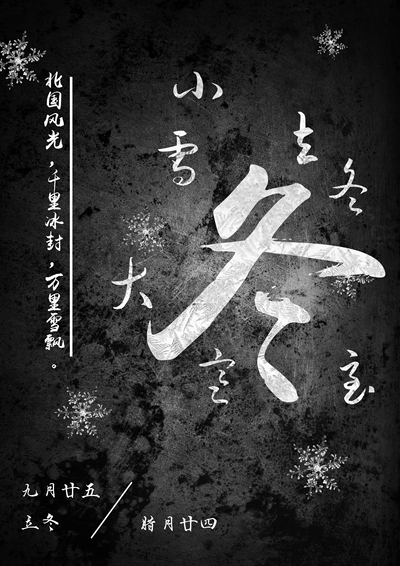 北国风光，千里冰封，万里雪飘。
小雪
立冬
冬
大寒
至
九月廿五
立冬
腊月廿四